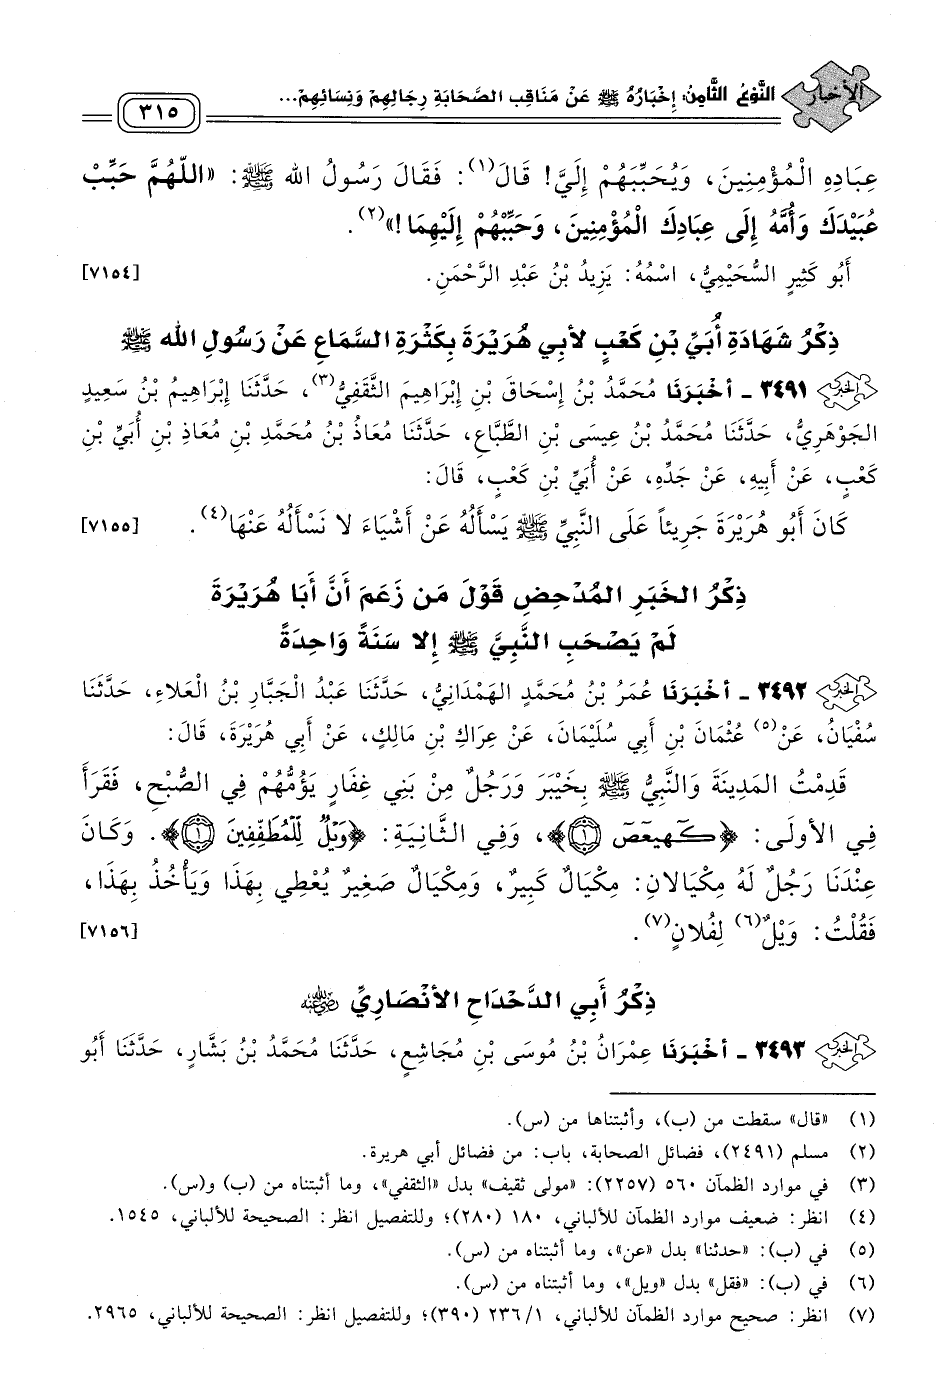 الأخبار
النَّوعُ الثَّامِنُ: إِخْبَارُهُ ﷺ عَنْ مَنَاقِبِ الصَّحَابَةِ رِجَالِهِمْ وَنِسَائِهِمْ...
٣١٥
عِبَادِهِ الْمُؤْمِنِينَ، وَيُحَبِّبَهُمْ إِلَيَّ! قَالَ(١): فَقَالَ رَسُولُ الله ﷺ: «اللّٰهُمَّ حَبِّبْ
عُبَيْدَكَ وَأُمَّهُ إِلَى عِبَادِكَ الْمُؤْمِنِينَ، وَحَبِّبْهُمْ إِلَيْهِمَا!»(٢).
أَبُو كَثِيرٍ السُّحَيْمِيُّ، اسْمُهُ: يَزِيدُ بْنُ عَبْدِ الرَّحْمَنِ. [٧١٥٤]
ذِكْرُ شَهَادَةِ أُبَيِّ بْنِ كَعْبٍ لأبِي هُرَيْرَةَ بِكَثْرَةِ السَّمَاعِ عَنْ رَسُولِ الله ﷺ
الخبر ٣٤٩١ - أَخْبَرَنَا مُحَمَّدُ بْنُ إِسْحَاقَ بْنِ إِبْرَاهِيمَ الثَّقَفِيُّ(٣)، حَدَّثَنَا إِبْرَاهِيمُ بْنُ سَعِيدٍ
الجَوْهَرِيُّ، حَدَّثَنَا مُحَمَّدُ بْنُ عِيسَى بْنِ الطَّبَّاعِ، حَدَّثَنَا مُعَاذُ بْنُ مُحَمَّدِ بْنِ مُعَاذِ بْنِ أُبَيِّ بْنِ
كَعْبٍ، عَنْ أَبِيهِ، عَنْ جَدِّهِ، عَنْ أُبَيِّ بْنِ كَعْبٍ، قَالَ:
كَانَ أَبُو هُرَيْرَةَ جَرِيئاً عَلَى النَّبِيِّ ﷺ يَسْأَلُهُ عَنْ أَشْيَاءَ لا نَسْأَلُهُ عَنْهَا(٤). [٧١٥٥]
ذِكْرُ الخَبَرِ المُدْحِضِ قَوْلَ مَن زَعَمَ أَنَّ أَبَا هُرَيْرَةَ
لَمْ يَصْحَبِ النَّبِيَّ ﷺ إِلا سَنَةً وَاحِدَةً
الخبر ٣٤٩٢ - أَخْبَرَنَا عُمَرُ بْنُ مُحَمَّدٍ الهَمْدَانِيُّ، حَدَّثَنَا عَبْدُ الْجَبَّارِ بْنُ الْعَلاءِ، حَدَّثَنَا
سُفْيَانُ، عَنْ(٥) عُثْمَانَ بْنِ أَبِي سُلَيْمَانَ، عَنْ عِرَاكِ بْنِ مَالِكٍ، عَنْ أَبِي هُرَيْرَةَ، قَالَ:
قَدِمْتُ المَدِينَةَ وَالنَّبِيُّ ﷺ بِخَيْبَرَ وَرَجُلٌ مِنْ بَنِي غِفَارٍ يَؤُمُّهُمْ فِي الصُّبْحِ، فَقَرَأَ
فِي الأُولَى: ﴿كٓهيعٓصٓ ١﴾، وَفِي الثَّانِيَةِ: ﴿وَيْلٌ لِّلْمُطَفِّفِينَ ١﴾. وَكَانَ
عِنْدَنَا رَجُلٌ لَهُ مِكْيَالانِ: مِكْيَالٌ كَبِيرٌ، وَمِكْيَالٌ صَغِيرٌ يُعْطِي بِهَذَا وَيَأْخُذُ بِهَذَا،
فَقُلْتُ: وَيْلٌ(٦) لِفُلانٍ(٧). [٧١٥٦]
ذِكْرُ أَبِي الدَّحْدَاحِ الأنْصَارِيِّ رضي الله عنه
الخبر ٣٤٩٣ - أَخْبَرَنَا عِمْرَانُ بْنُ مُوسَى بْنِ مُجَاشِعٍ، حَدَّثَنَا مُحَمَّدُ بْنُ بَشَّارٍ، حَدَّثَنَا أَبُو
(١) «قال» سقطت من (ب)، وأثبتناها من (س).
(٢) مسلم (٢٤٩١)، فضائل الصحابة، باب: من فضائل أبي هريرة.
(٣) في موارد الظمآن ٥٦٠ (٢٢٥٧): «مولى ثقيف» بدل «الثقفي»، وما أثبتناه من (ب) و(س).
(٤) انظر: ضعيف موارد الظمآن للألباني، ١٨٠ (٢٨٠)؛ وللتفصيل انظر: الصحيحة للألباني، ١٥٤٥.
(٥) في (ب): «حدثنا» بدل «عن»، وما أثبتناه من (س).
(٦) في (ب): «فقل» بدل «ويل»، وما أثبتناه من (س).
(٧) انظر: صحيح موارد الظمآن للألباني، ٢٣٦/١ (٣٩٠)؛ وللتفصيل انظر: الصحيحة للألباني، ٢٩٦٥.